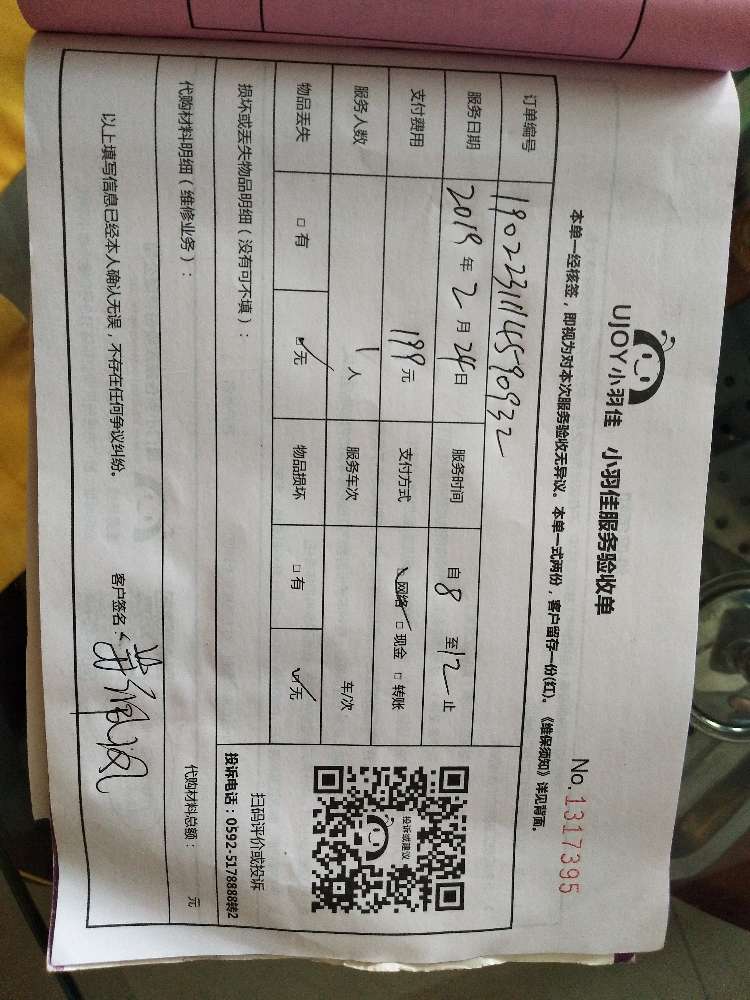 UJOY小羽佳 小羽佳服务验收单
No.1317395
本单一经核签，即视为对本次服务验收无异议。本单一式两份，客户留存一份(红)。《维保须知》详见背面。
订单编号 190223114590932
服务日期 2019年2月24日 服务时间 自8至12止
支付费用 199元 支付方式 网络 □现金 □转账
服务人数 1人 服务车次 车/次
物品丢失 □有 □无 物品损坏 □有 □无
投诉或建议
扫码评价或投诉
投诉电话：0592-5178888转2
损坏或丢失物品明细（没有可不填）：
代购材料明细（维修业务）： 代购材料总额： 元
以上填写信息已经本人确认无误，不存在任何争议纠纷。
客户签名：